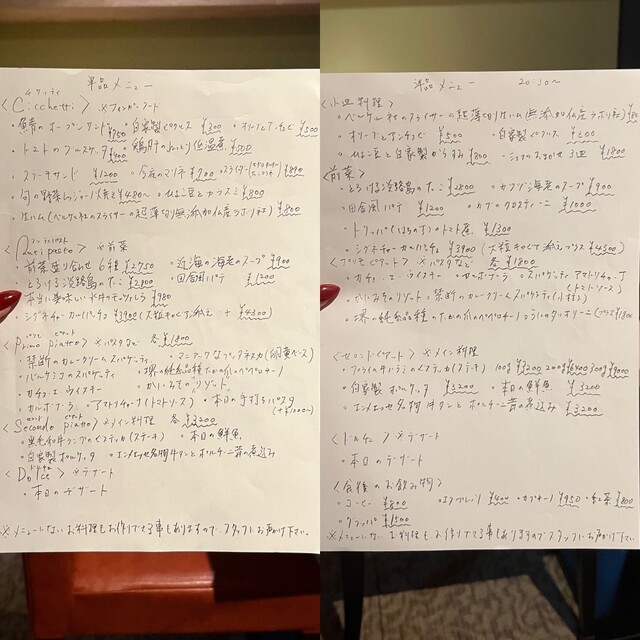 単品メニュー
チケッティ
<Cicchetti> ※フィンガーフード
・鯖のオープンサンド ¥750 ・自家製ピクルス ¥300 ・オリーブとアンチョビ ¥500
・トマトのブルスケッタ ¥400 ・鶏肝のしっとり低温煮 ¥500
¥1200 ・今夜のマリネ ¥900
¥480〜 ・ひよこ豆とカラスミ ¥800
・生ハム(ベルケル社のスライサーの超薄切り無添加仏産ラボリ社) ¥800
アンティパスト
<Antipasto> ※前菜
・前菜盛り合せ 6種 ¥2750 ・近海の海老のスープ ¥900
・とろける淡路島のたこ ¥2800 ・田舎風パテ ¥1200
・本当に美味しい水牛のモッツァレラ ¥980
・シグネチャーカルパッチョ ¥3900 (大粒キャビア添え + ¥4300)
プリモ ピアット
<Primo piatto> ※パスタなど 各 ¥1800
・禁断のカレークリームスパゲッティ
・バーケミカのスパゲティ ・堺の純純品種たかの爪のペペロンチーノ
・カチョエウイスキー ・からすみのリゾット
・カルボナーラ ・アマトリチャーナ(トマトソース) ・本日の手打ちパスタ
<Secondo piatto> ※メイン料理 各 ¥3200
・黒毛和牛ランプのビステッカ(ステーキ) ・本日の鮮魚
・自家製ポルケッタ ・エンメッセ名物牛タンとポルチーニ茸の煮込み
ドルチェ
<Dolce> ※デザート
・本日のデザート
※メニューにないお料理もお作りできる事もありますので、スタッフにお声掛け下さい。
単品メニュー 20:30〜
<小皿料理>
・ベルケル社のスライサーの超薄切り生ハム(無添加仏産ラボリ社)
・オリーブとアンチョビ ¥500 ・自家製ピクルス ¥300
・ひよこ豆と自家製からすみ ¥800 ・シェフのおまかせ3皿 ¥1800
<前菜>
・とろける淡路島のたこ ¥2800 ・カプチーノ海老のスープ ¥900
・田舎風パテ ¥1200 ・カブのクロスティーニ ¥1000
・トリッパ(はちのす)のトマト煮 ¥1300
・シグネチャーカルパッチョ ¥3900 (大粒キャビア添えプラス ¥4300)
<プリモピアット> ※パスタなど 各 ¥1800
・カチョ・エ・ウイスキー ・カルボナーラ ・スパゲッティアマトリチャーナ(トマトソース)
・からすみのリゾット ・禁断のカレークリームスパゲッティ
・堺の純純品種のたかの爪のペペロンチーノ ・うにのタリオリーニ(プラス ¥1800
<セコンドピアット> ※メイン料理
のビステッカ(ステーキ) 100g ¥3200 200g ¥6400 300g ¥9000
・自家製ポルケッタ ¥3200 ・本日の鮮魚 ¥3200
・エンメッセ名物牛タンとポルチーニ茸の煮込み ¥3200
<ドルチェ> ※デザート
・本日のデザート
<食後のお飲み物>
・コーヒー ¥800 ・エスプレッソ ¥400 ・カプチーノ ¥950 ・紅茶 ¥800
・グラッパ ¥1500
※メニューにないお料理もお作りできる事もありますのでスタッフにお声掛け下さい。